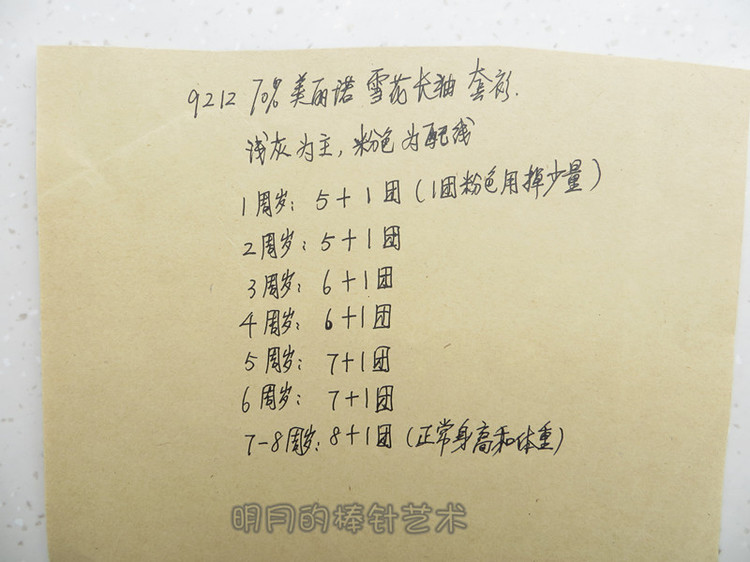 9212 70% 美丽诺 雪花长袖 套衫.
浅灰为主，粉色为配线
1周岁：5+1团（1团粉色用掉少量）
2周岁：5+1团
3周岁：6+1团
4周岁：6+1团
5周岁：7+1团
6周岁：7+1团
7-8周岁：8+1团（正常身高和体重）
明月的棒针艺术